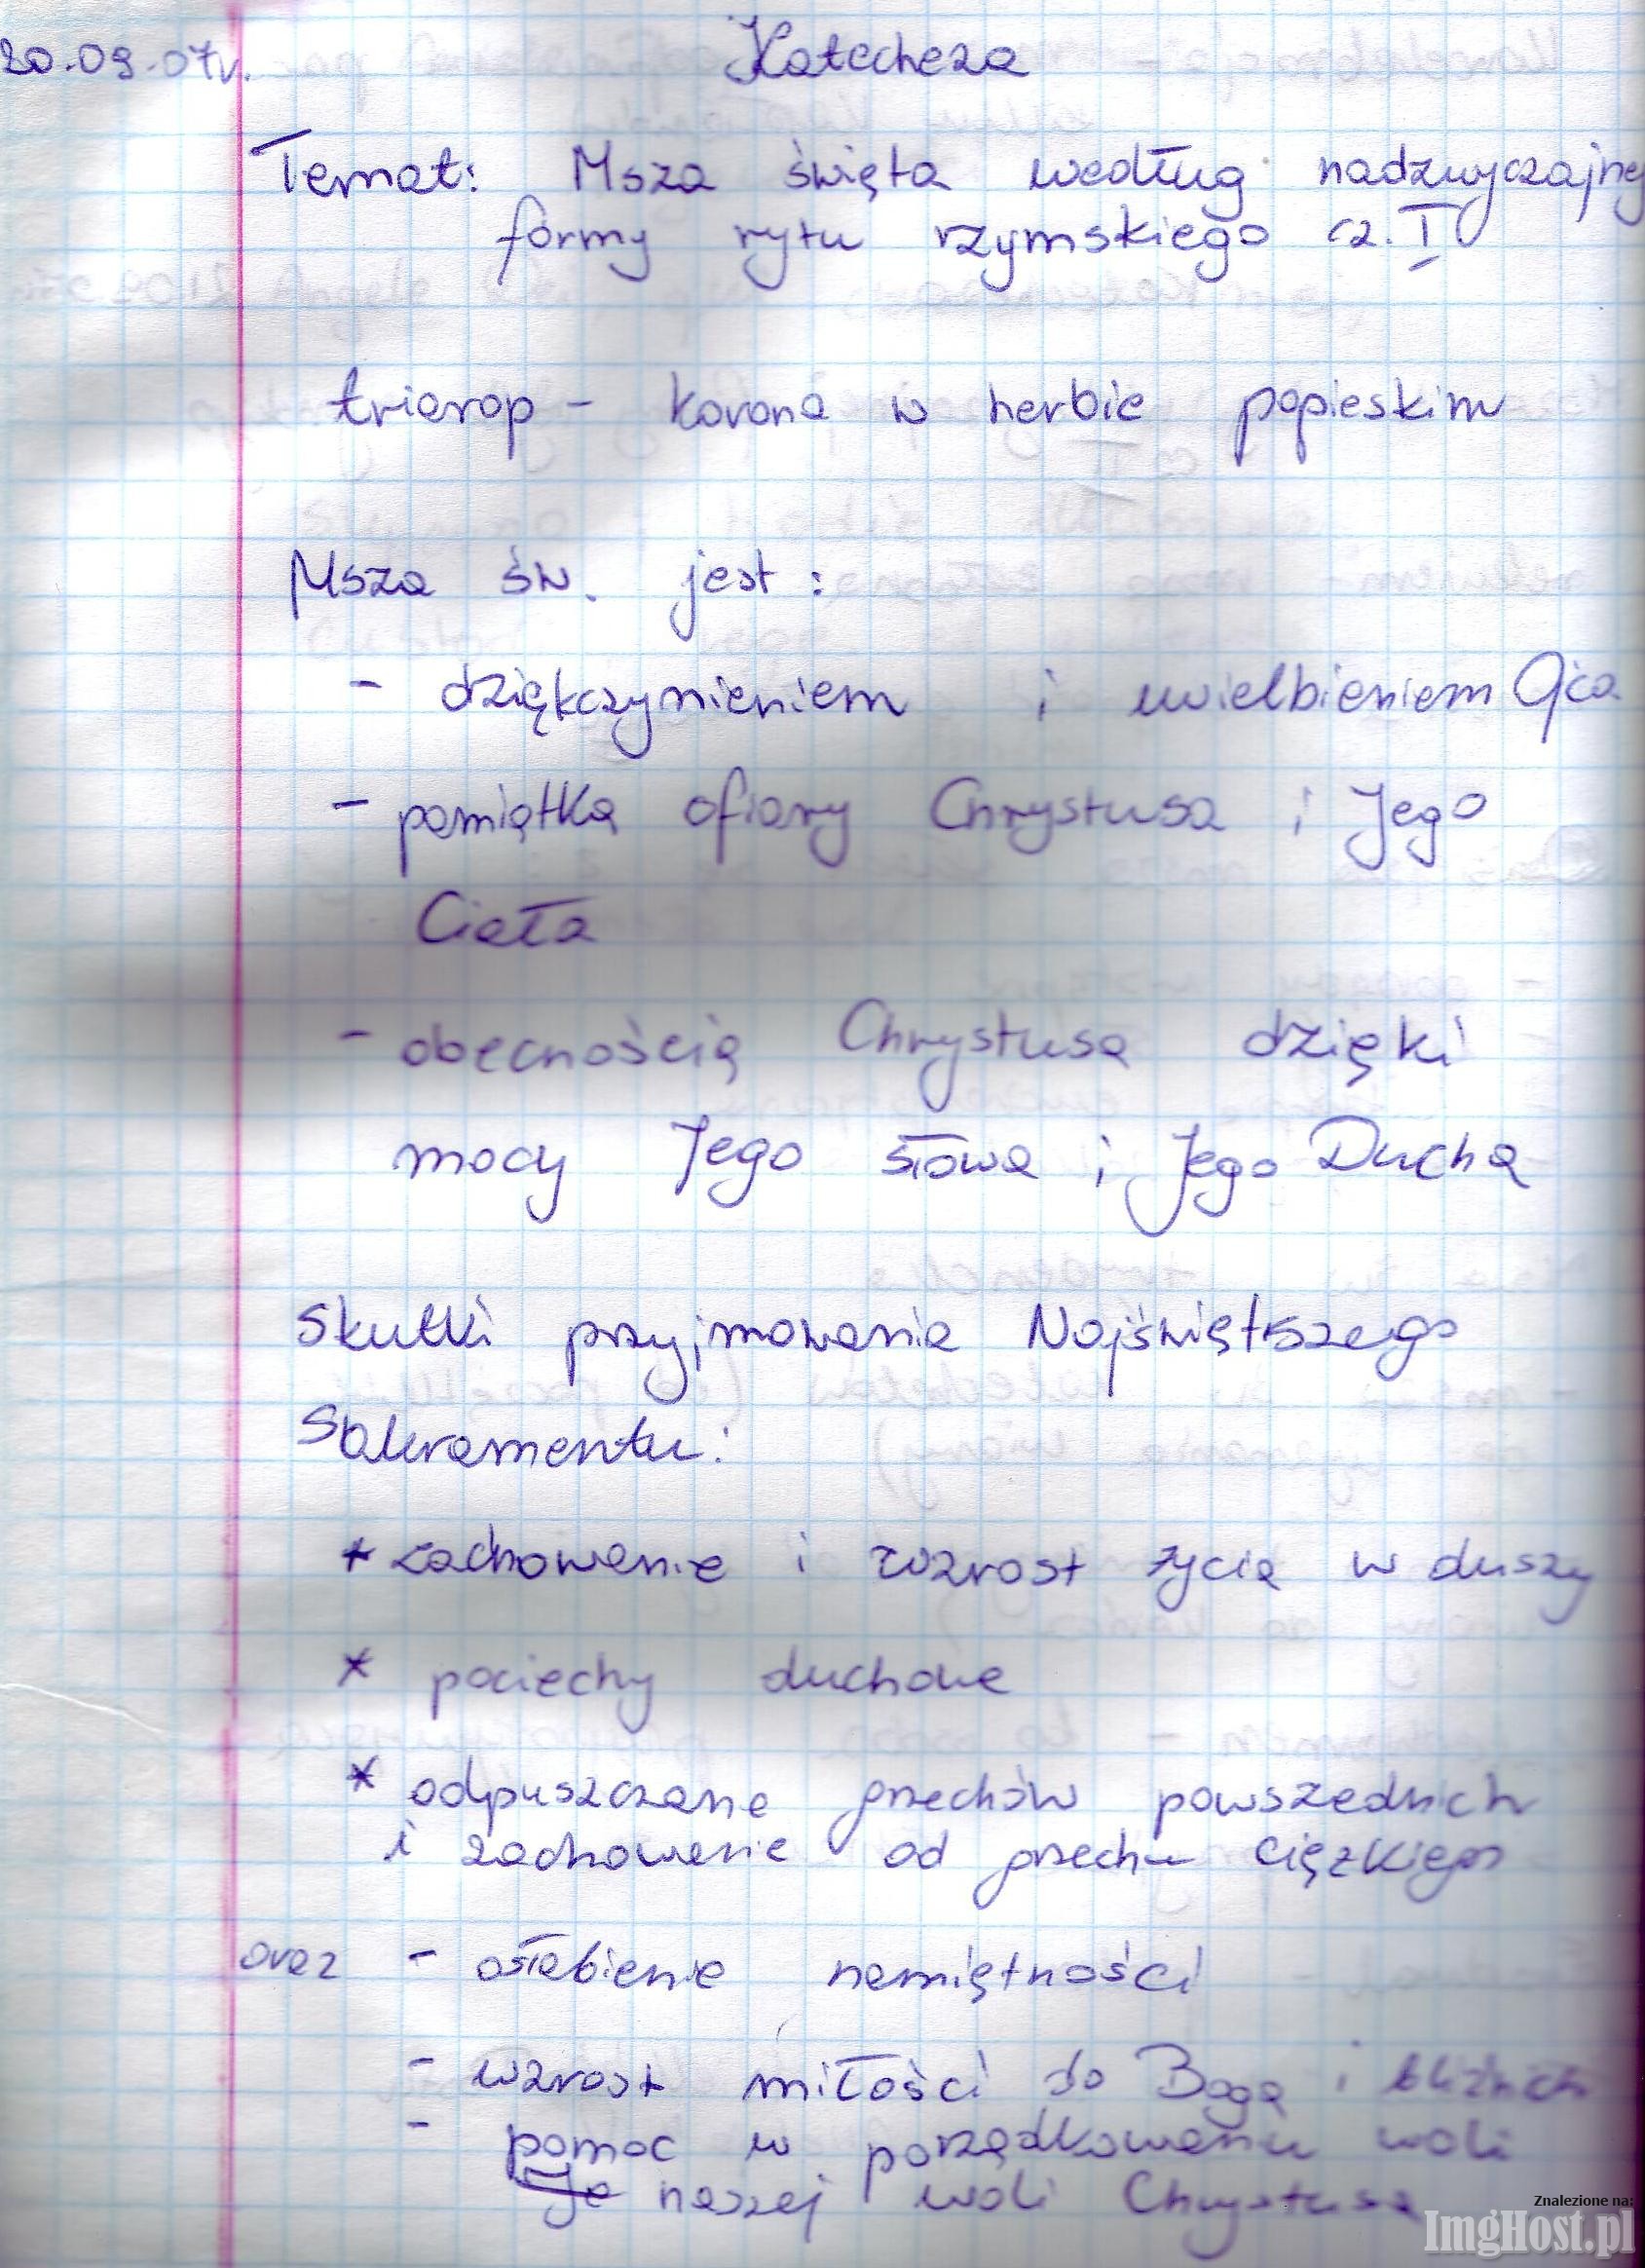 20.09.07r.
Katecheza
Temat: Msza święta według nadzwyczajnej
formy rytu rzymskiego cz. I
triarop - korona w herbie papieskim
Msza św. jest:
- dziękczynieniem i uwielbieniem Ojca
- pamiątką ofiary Chrystusa i Jego
Ciała
- obecnością Chrystusa dzięki
mocy Jego słowa i Jego Ducha
Skutki przyjmowania Najświętszego
Sakramentu:
* zachowanie i wzrost życia w duszy
* pociechy duchowe
* odpuszczane grzechów powszednich
i zachowanie od grzechu ciężkiego
oraz - osłabienie namiętności
- wzrost miłości do Boga i bliźnich
- pomoc w porządkowaniu woli
naszej woli Chrystusa
Znalezione na:
ImgHost.pl